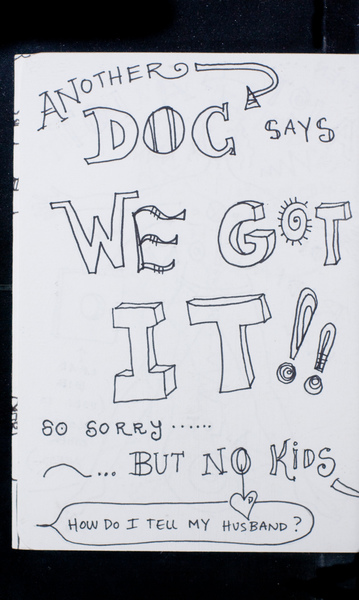 ANOTHER
DOC SAYS
WE GOT
IT!!
SO SORRY......
... BUT NO KIDS
HOW DO I TELL MY HUSBAND?